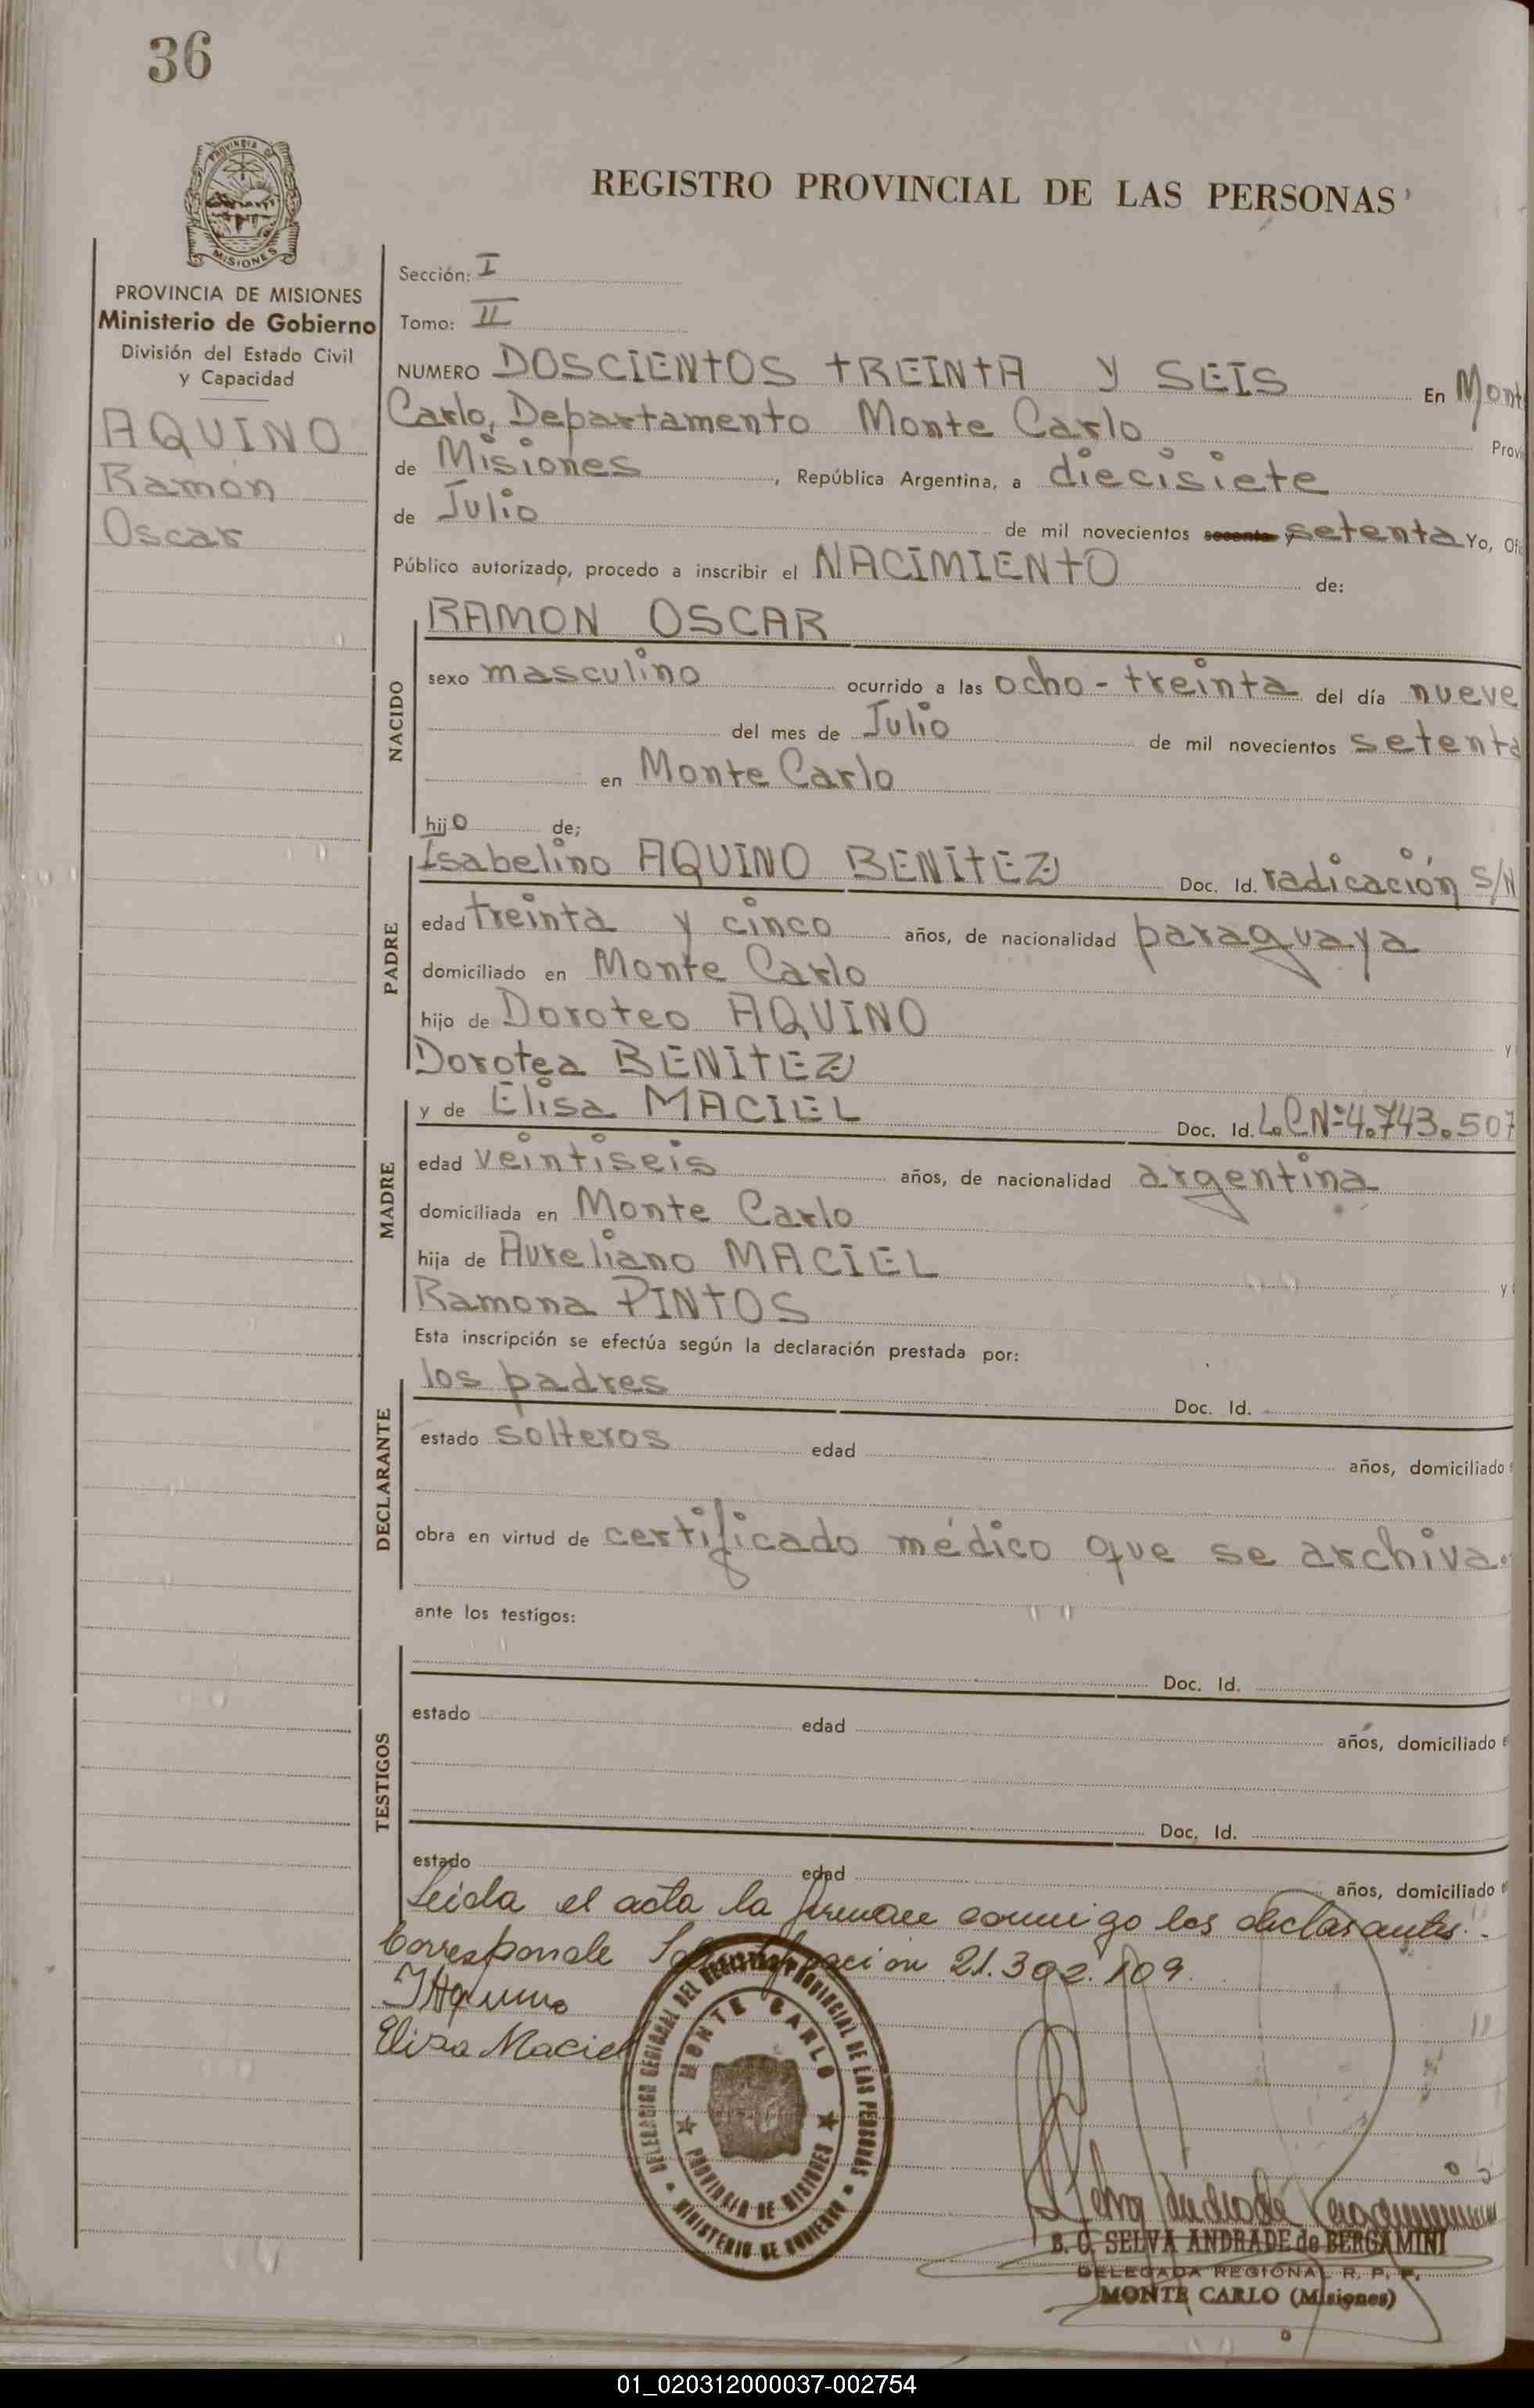 36
PROVINCIA DE MISIONES
REGISTRO PROVINCIAL DE LAS PERSONAS
PROVINCIA DE MISIONES
Ministerio de Gobierno
División del Estado Civil
y Capacidad
AQUINO
Ramón
Oscar
Sección: I
Tomo: II
NUMERO DOSCIENTOS TREINTA Y SEIS En Mont
Carlo, Departamento Monte Carlo Provi
de Misiones, República Argentina, a diecisiete
de Julio de mil novecientos setenta Yo, Ofi
Público autorizado, procedo a inscribir el NACIMIENTO de:
NACIDO
RAMON OSCAR
sexo masculino ocurrido a las ocho-treinta del día nueve
del mes de Julio de mil novecientos setenta
en Monte Carlo
hijo de;
PADRE
Isabelino AQUINO BENITEZ Doc. Id. radicación S/N
edad treinta y cinco años, de nacionalidad paraguaya
domiciliado en Monte Carlo
hijo de Doroteo AQUINO y
Dorotea BENITEZ
MADRE
y de Elisa MACIEL Doc. Id. L.C Nº 4.743.507
edad veintiseis años, de nacionalidad argentina
domiciliada en Monte Carlo
hija de Aureliano MACIEL y
Ramona PINTOS
Esta inscripción se efectúa según la declaración prestada por:
DECLARANTE
los padres Doc. Id.
estado solteros edad años, domiciliado e
obra en virtud de certificado médico que se archiva.
ante los testigos:
TESTIGOS
Doc. Id.
estado edad años, domiciliado e
Doc. Id.
estado edad años, domiciliado e
Leida el acta la firman conmigo los declarantes.-
Corresponde 21.302.109.
IAquino
Elisa Maciel
DELEGACION REGIONAL DEL REGISTRO PROVINCIAL DE LAS PERSONAS
MONTE CARLO
PROVINCIA DE MISIONES
MINISTERIO DE GOBIERNO
B. C. SELVA ANDRADE de BERGAMINI
DELEGADA REGIONAL R. P. P.
MONTE CARLO (Misiones)
01_020312000037-002754